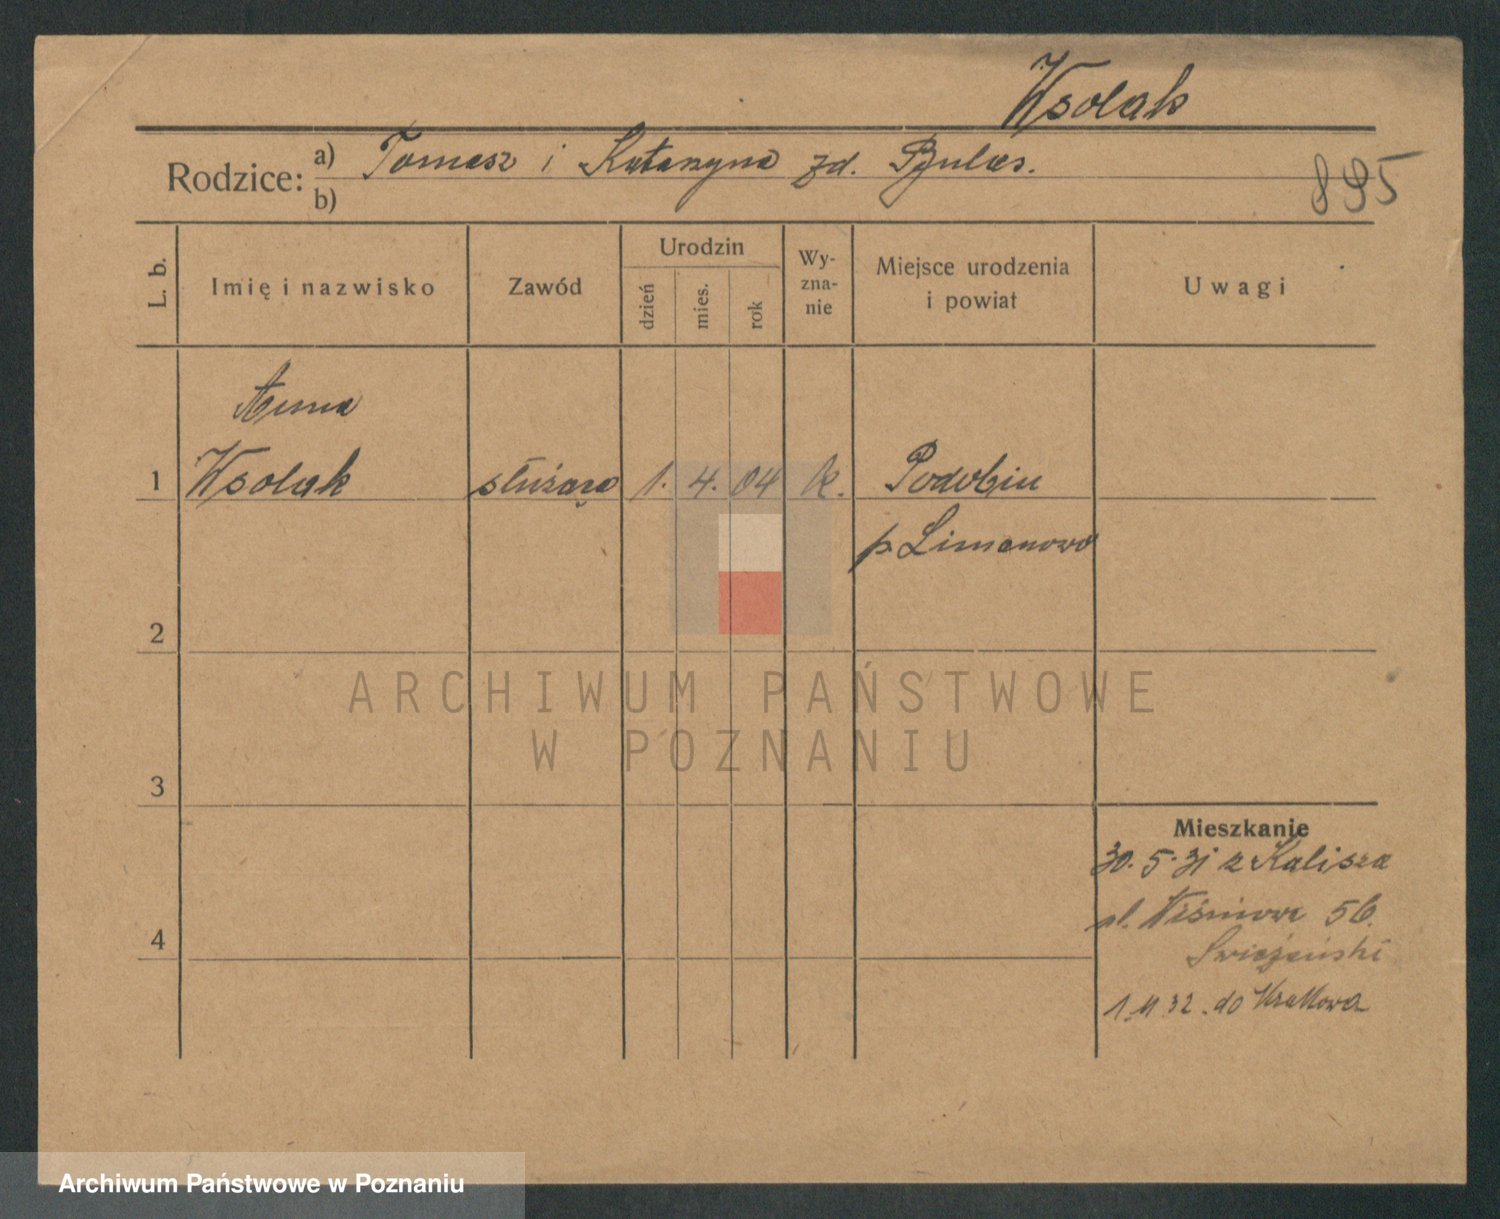 Wsolak
Rodzice: a) Tomasz i Katarzyna zd.
b)
895
L. b.
Imię i nazwisko
Zawód
Urodzin
dzień
mies.
rok
Wy-
zna-
nie
Miejsce urodzenia
i powiat
Uwagi
Anna
1 Wsolak służąca 1. 4. 04 k. Podobin
p. Limanowa
2
3
4
Mieszkanie
30.5.31 z Kalisza
ul. 56.
1.11.32. do Krakowa
ARCHIWUM PAŃSTWOWE
W POZNANIU
Archiwum Państwowe w Poznaniu